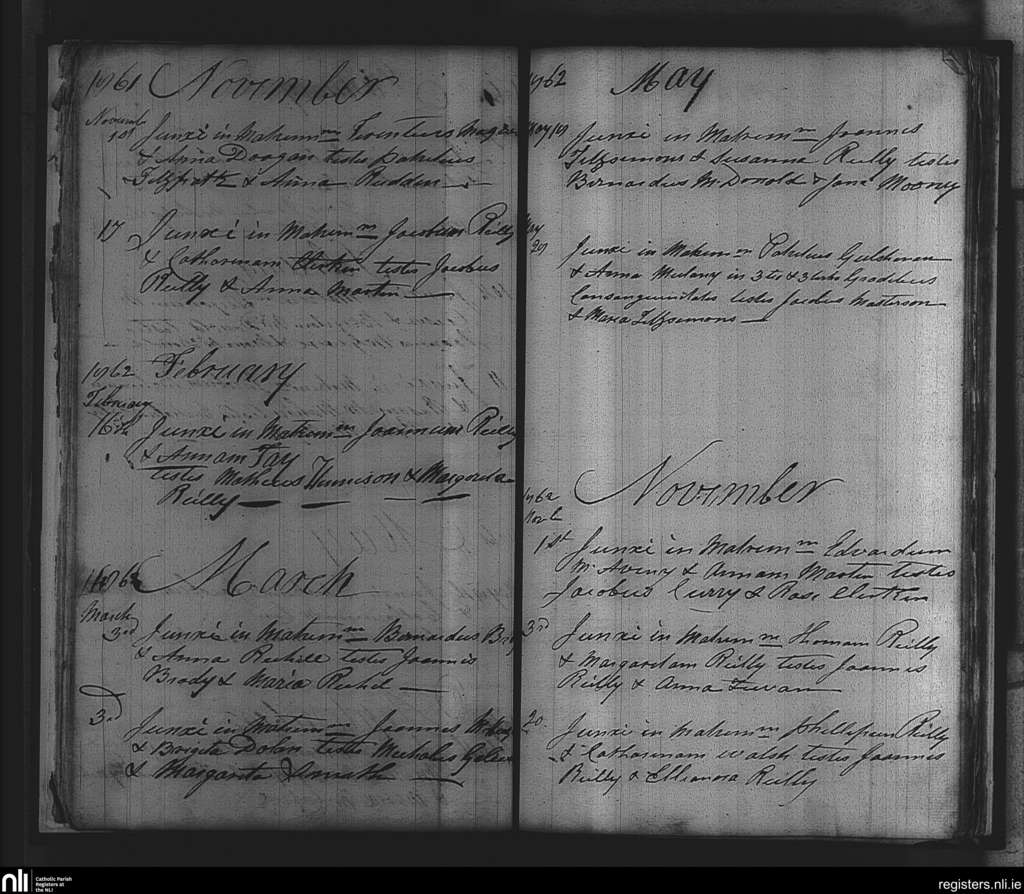 1761 November
Novemb
1st Junxi in Matrem m Terentius
& Anna Doogan testes Patritius
Fitzpatk & Anna Rudden
17 Junxi in Matrem m Jacobum Reilly
& Catharinam Clirken testes Jacobus
Reilly & Anna Martin
1762 February
February
16th Junxi in Matrem m Joannum Reilly
& Annam Fay
testes Matheus Hunison & Margarita
Reilly
1762 March
March
3rd Junxi in Matrem m Bernardus
& Anna Reehill testes Joannis
Brody & Maria Reehil
3rd Junxi in Matrem m Joannes
& Brigita Dolan testes Micholes
& Margarita Smith
1762 May
May 19 Junxi in Matrem m Joannis
Fitzsimons & Susanna Reilly testes
Bernardus McDonold & Jana Mooney
May
29 Junxi in Matrem m Patritius
& Anna Mulany in 3tio & 3tio Gradibus
Consanguinitatis testes Jacobus Masterson
& Maria Fitzsimons
1762 November
Nov
1st Junxi in Matrem m Edvardum
McAveny & Annam Martin testes
Jacobus Curry & Rose Clirken
3rd Junxi in Matrem m Thomam Reilly
& Margaretam Reilly testes Joannis
Reilly & Anna
20 Junxi in Matrem m Phillipum Reilly
& Catharinam Walsh testes Joannes
Reilly & Elleanora Reilly
nli
Catholic Parish
Registers at
the NLI
registers.nli.ie